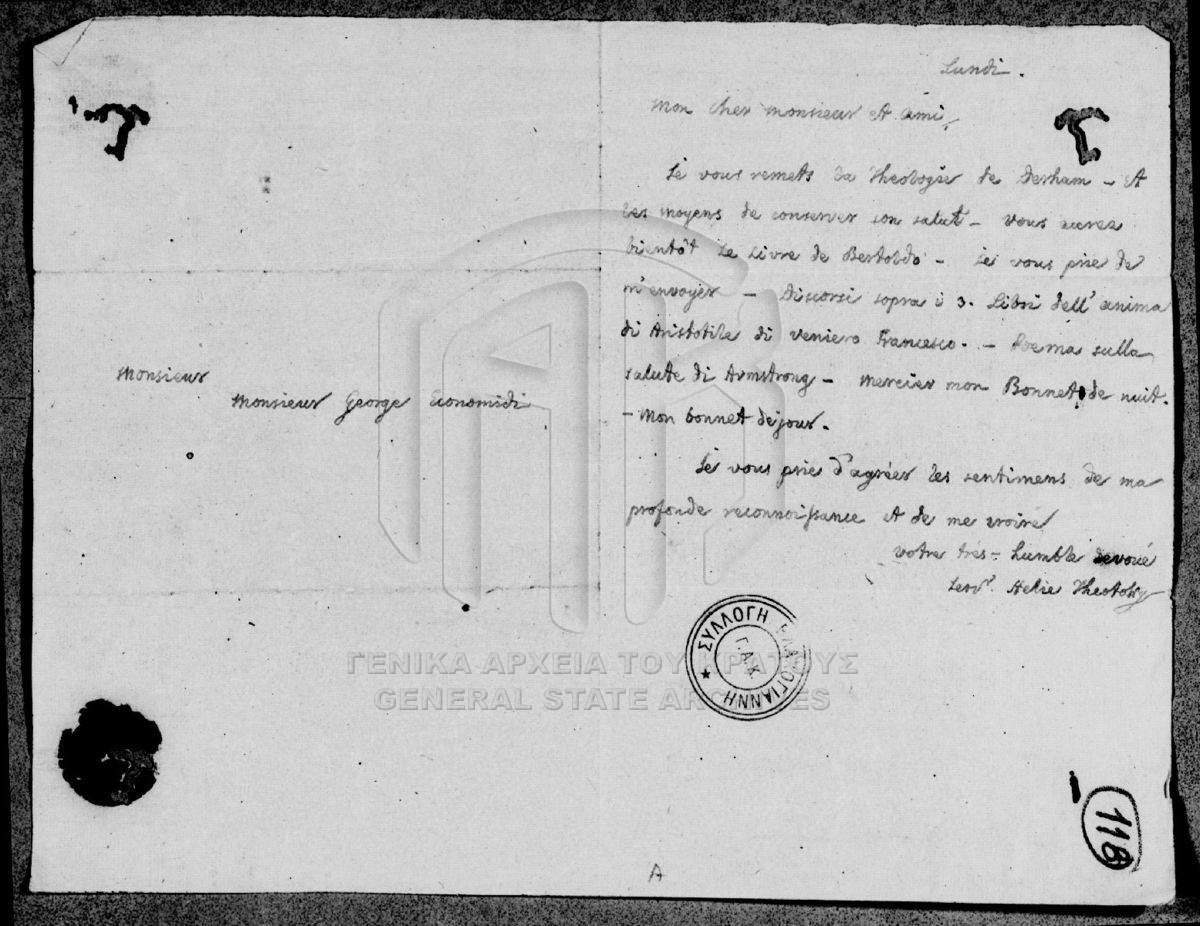 Lundi.
Mon cher Monsieur et ami,
Je vous remets la Theologie de Derham – et
les moyens de conserver son salut – vous aurez
bientôt le Livre de Bertoldo – Je vous prie de
m'envoyer – Discorsi sopra i 3. Libri dell' anima
di Aristotile di Veniero Francesco. – Poema sulla
salute di Armstrong – Mercier mon Bonnet de nuit.
– Mon bonnet de jour.
Je vous prie d'agréer les sentimens de ma
profonde reconnoissance et de me croire
Votre très-humble devoué
Serv.r Helie Theotoky
Monsieur
Monsieur George Economidi
ΣΥΛΛΟΓΗ ΒΛΑΧΟΓΙΑΝΝΗ
Γ.Α.Κ.
ΓΕΝΙΚΑ ΑΡΧΕΙΑ ΤΟΥ ΚΡΑΤΟΥΣ
GENERAL STATE ARCHIVES
118
A